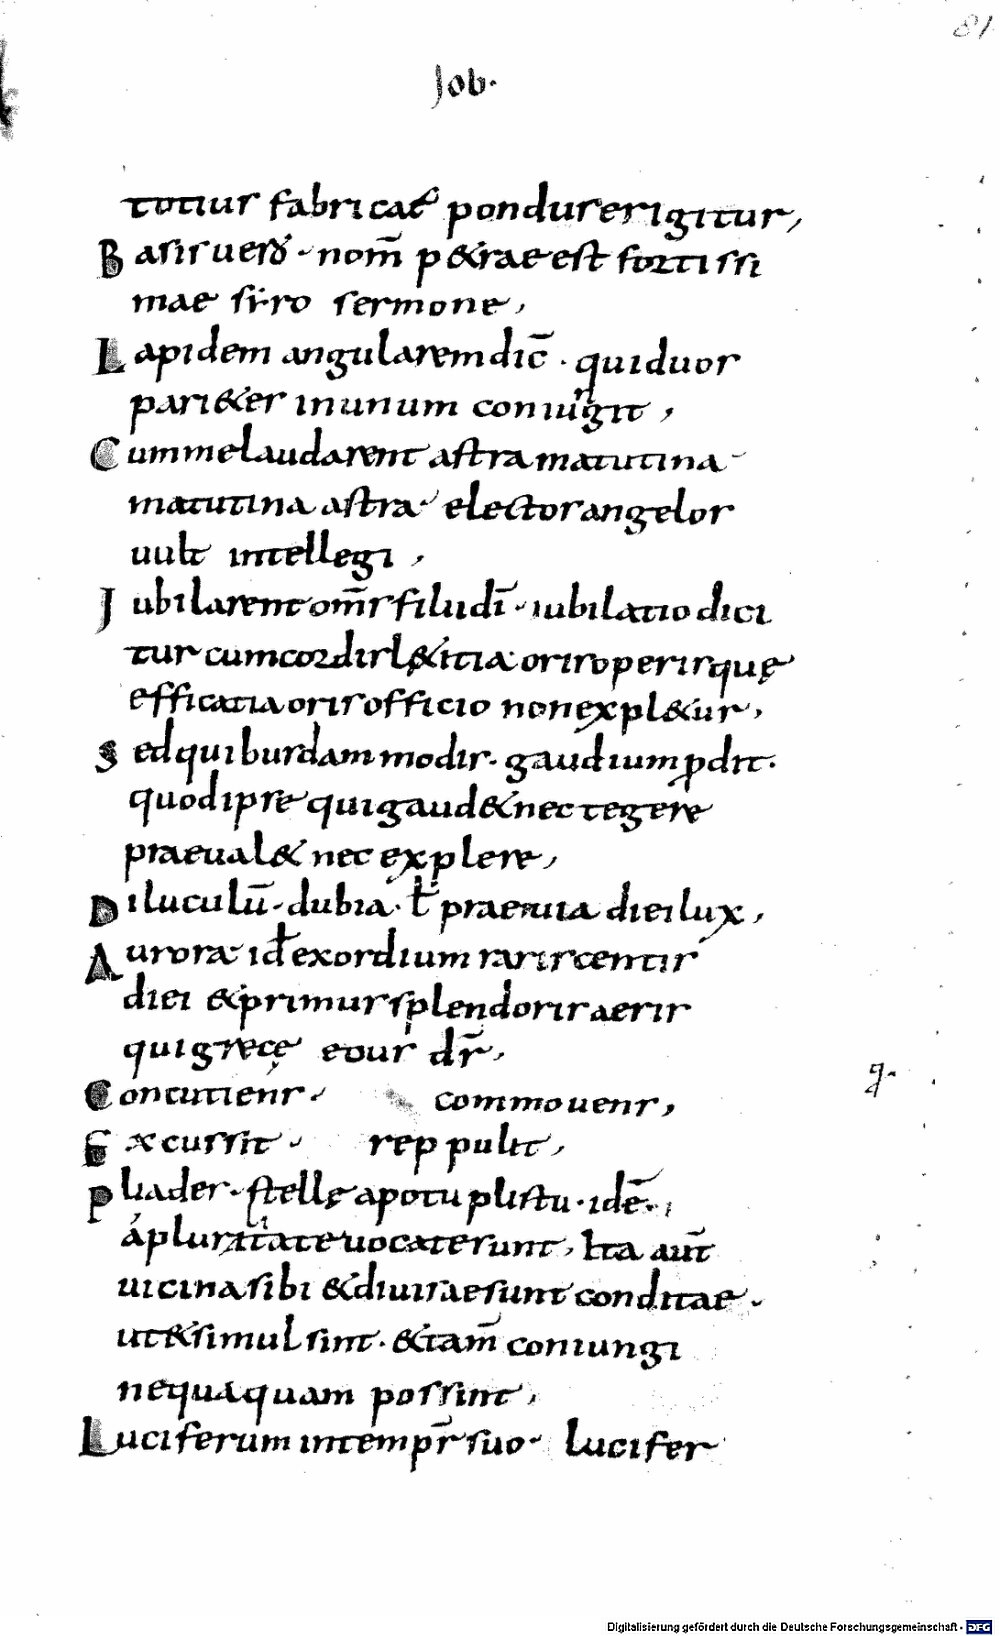 81
Job·
totius fabricae pondus erigitur,
Basis uero · nom̄ p&rae est fortissi
mae siro sermone,
Lapidem angularem dic̄ · qui duos
pari&es in unum coniungit,
Cum me laudarent astra matutina
matutina astra · electos angelos
uult intellegi,
Jubilarent om̄s filii dī · iubilatio dici
tur cum cordis l&itia oris operisquę
efficatia oris officio non expl&ur,
sed quibusdam modis · gaudium ꝓdit·
quod ipse qui gaud& nec tegere
praeual& nec explere,
Diluculū · dubia · ƚ praeuia diei lux,
Aurora · idē exordium rarescentis
diei & primus splendoris aeris
qui grecę eous dr̄,
Concutiens · commouens,
q·
Excussit · reppulit,
Pliades · stellę apotu plistu · idē·
a pluralitate uocate sunt, Ita aut̄
uicina sibi & diuisae sunt conditae ·
ut & simul sint · & tam̄ coniungi
nequaquam possint,
Luciferum in tempr̄ suo · lucifer
Digitalisierung gefördert durch die Deutsche Forschungsgemeinschaft - DFG